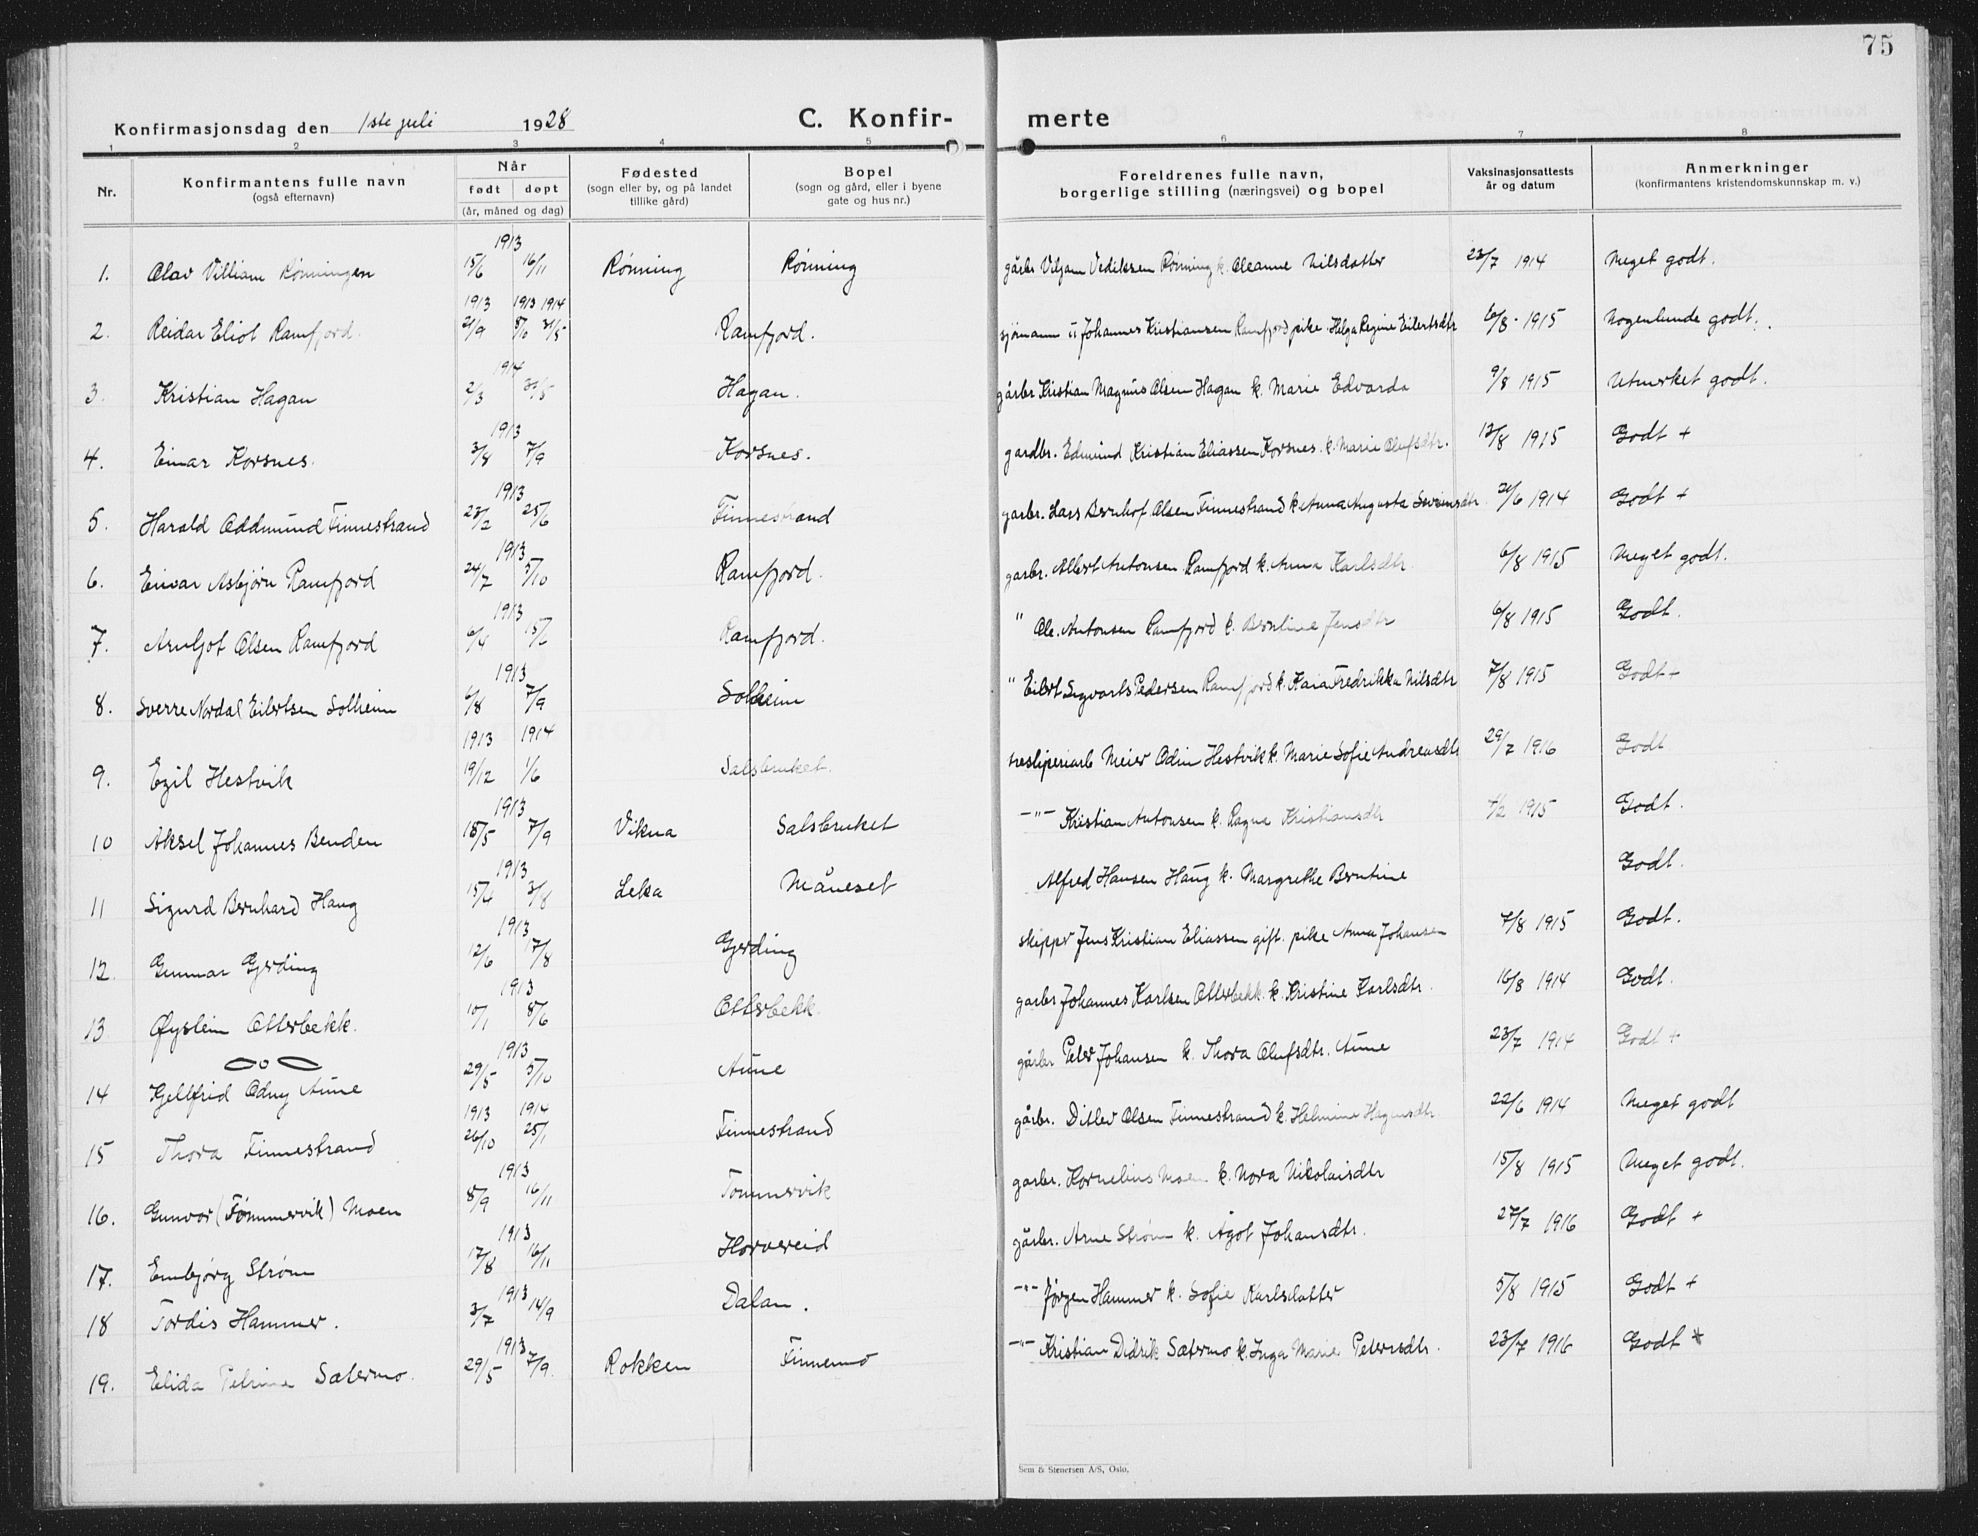 75
Konfirmasjonsdag den 1ste juli 1928 C. Konfir- merte
1 2 3 4 5 6 7 8
Nr. Konfirmantens fulle navn (også efternavn) Når født døpt (år, måned og dag) Fødested (sogn eller by, og på landet tillike gård) Bopel (sogn og gård, eller i byene gate og hus nr.) Foreldrenes fulle navn, borgerlige stilling (næringsvei) og bopel Vaksinasjonsattests år og datum Anmerkninger (konfirmantens kristendomskunnskap m. v.)
1. Olav Villiam Rønningen 1913 15/6 16/11 Rønning Rønning gårbr. Viljam Vediksen Rønning k. Oleanne Nilsdatter 22/7 1914 Meget godt.
2. Reidar Eliot Ramfjord. 1913 21/9 1913 5/10 1914 31/5 Ramfjord. sjømann u Johannes Kristiansen Ramfjord pike Helga Regine Eilertsdtr 6/8 1915 Nogenlunde godt.
3. Kristian Hagan 1914 2/3 31/5 Hagan. gårbr Kristian Magnus Olsen Hagan k. Marie Edvarda 9/8 1915 Utmerket godt.
4. Einar Korsnes. 1913 3/8 7/9 Korsnes. gardbr. Edmund Kristian Eliassen Korsnes. k. Marie Olufsdtr. 12/8 1915 Godt +
5. Harald Oddmund Finnestrand 1913 23/2 25/6 Finnestrand garbr. Lars Bernhof Olsen Finnestrand k. Anna Augusta Sevrinsdtr 24/6 1914 Godt +
6. Einar Asbjørn Ramfjord 1913 24/7 5/10 Ramfjord. garbr. Albert Antonsen Ramfjord k. Anna Karlsdtr. 6/8 1915 Meget godt.
7. Arnljot Olsen Ramfjord 1913 6/4 15/6 Ramfjord. " Ole Antonsen Ramfjord k. Berntine Jensdtr 6/8 1915 Godt.
8. Sverre Nordal Eilertsen Solheim 1913 6/8 7/9 Solheim " Eilert Sigvart Pedersen Ramfjord k. Kaia Fredrikka Nilsdtr 7/8 1915 Godt +
9. Egil Hestvik 1913 19/12 1914 1/6 Salsbruket. tresliperiarb Meier Odin Hestvik k. Marie Sofie Andreasdtr 29/7 1916 Godt
10 Aksel Johannes Benden 1913 18/5 7/9 Vikna Salsbruket -"- Kristian Antonsen k. Ragna Kristiansdtr 4/2 1915 Godt.
11 Sigurd Bernhard Haug 1913 15/4 3/8 Leka Måneset Alfred Hansen Haug k. Margrethe Berntine Godt.
12. Gunnar Gjerding 1913 12/6 7/8 Gjerding skipper Jens Kristian Eliassen gift. pike Anna Johansen 7/8 1915 Godt.
13 Øystein Otterbekk. 1913 10/1 8/6 Otterbekk. garbr Johannes Karlsen Otterbekk. k. Kristine Karlsdtr. 16/8 1914 Godt.
14 Gjellfrid Odny Aune 1913 29/5 5/10 Aune gårbr Peter Johansen k. Thora Olufsdtr. Aune 23/7 1914 Godt +
15 Thora Finnestrand 1913 26/10 1914 25/1 Finnestrand gårbr. Ditlev Olsen Finnestrand k. Helmine Hagensdtr 22/6 1914 Meget godt
16. Gunvor (Tømmervik) Moen 1913 8/9 16/11 Tommervik garbr. Kornelius Moen k. Nora Nikolaisdtr 15/8 1915 Meget godt.
17. Embjørg Strøm 1913 17/8 16/11 Horvereid gårbr. Arne Strøm k. Ågot Johansdtr. 27/7 1916 Godt +
18 Tordis Hammer. 1913 3/7 14/9 Dalan. -"- Jørgen Hammer k. Sofie Karlsdatter 5/8 1915 Godt +
19. Elida Petrine Sætermo. 1913 29/5 7/9. Rokken Finnemo -"- Kristian Didrik Sætermo k. Inga Marie Petersdtr. 23/7 1916 Godt +
Sem & Stenersen A/S, Oslo.